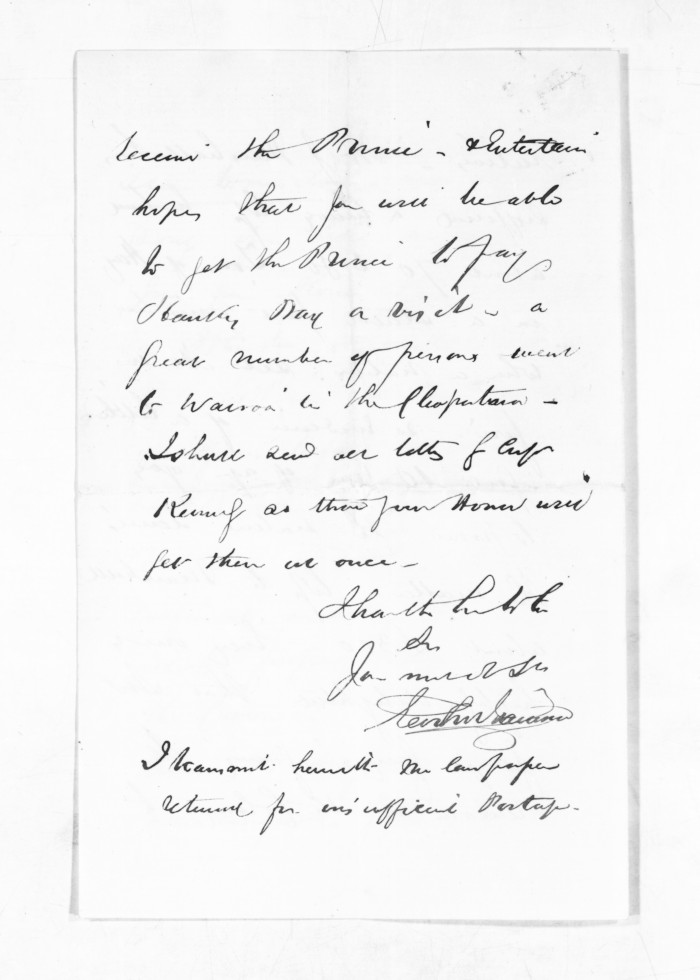 receive the Prince - & Entertain
hopes that you will be able
to get the Prince to pay
Hawkes Bay a visit - a
great number of persons went
to Wairoa in the Cleopatra -
I shall send all letters
as then your Honor will
get them at once -
I have the honor to be
Sir
Your most
I transmit herewith
returned for insufficient Postage -